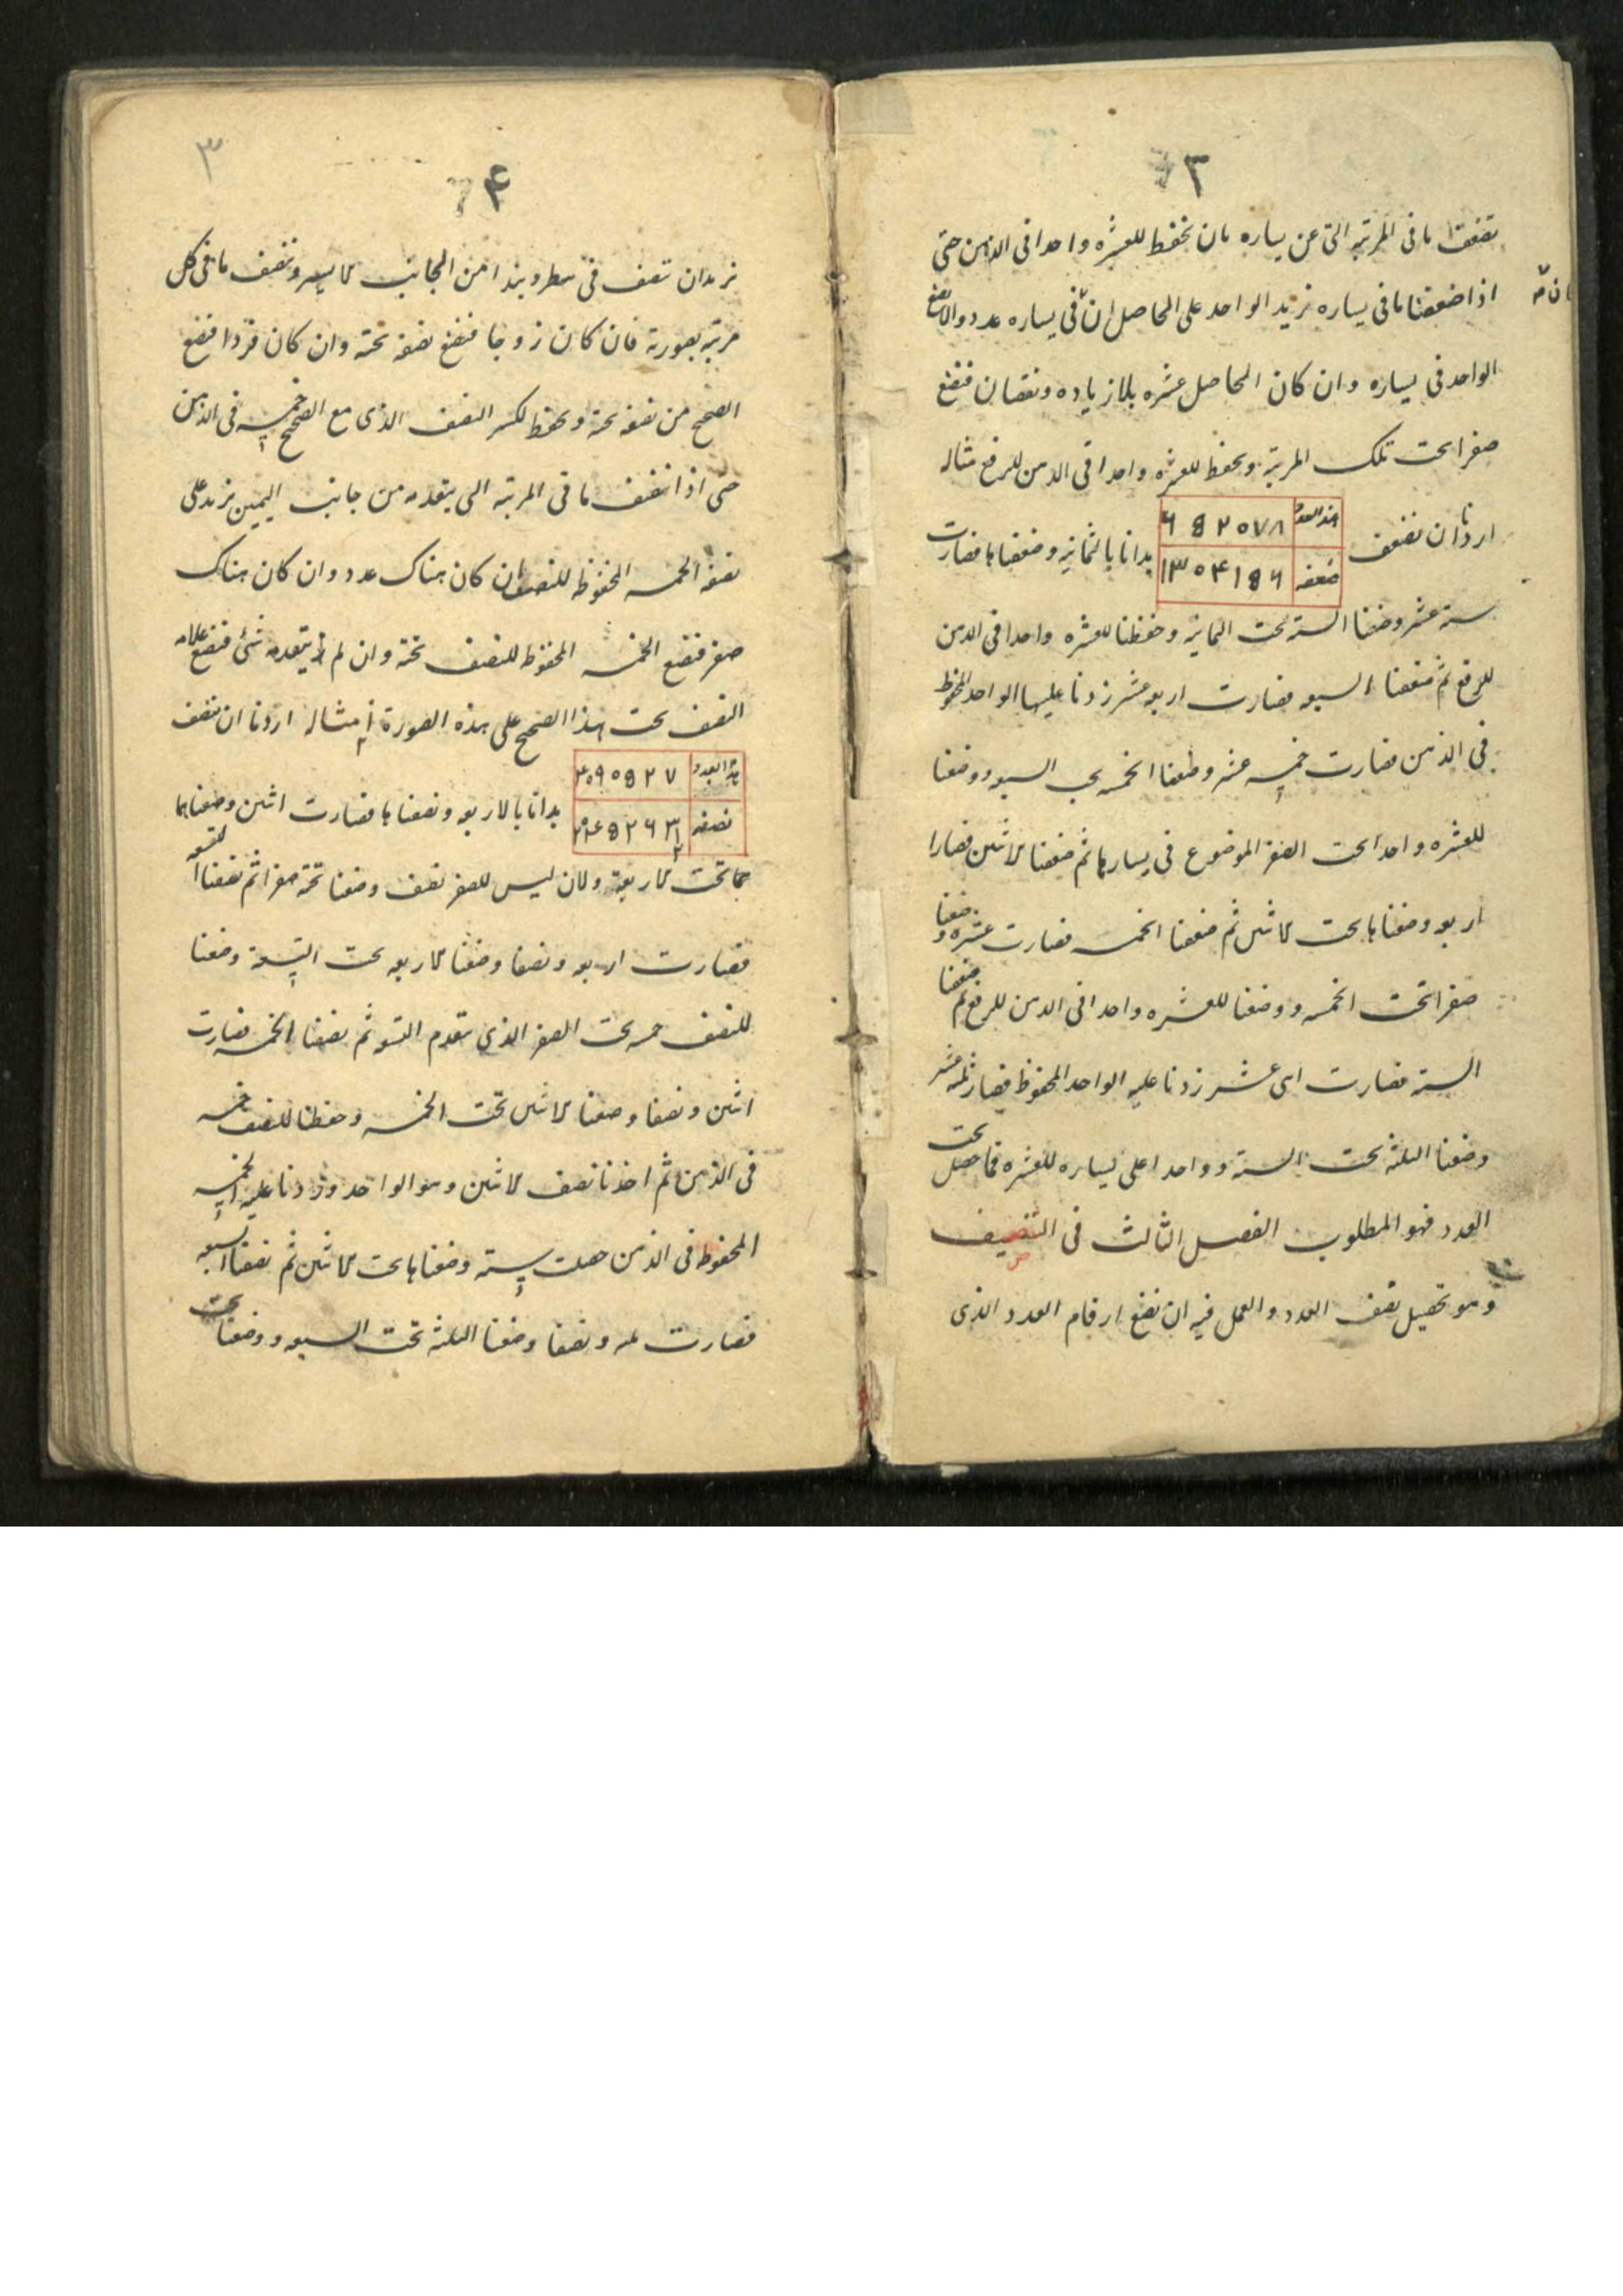 ٣
تضعف ما فى المرتبه التى عن يساره بان تحفظ للعشره واحدا فى الذهن حتى
اذا ضعفنا ما فى يساره نزيد الواحد على الحاصل ان فى يساره عدد والا نضع
الواحد فى يساره وان كان الحاصل عشره بلا زياده ونقصان فنضع
صفرا تحت تلك المرتبه ونحفظ للعشره واحدا فى الذهن للرفع مثاله
اردنا ان نضعف
هذا العدد ٦ ٥ ٢ ٠ ٧ ٨
ضعفه ١٣ ٠ ٤ ١ ٥ ٦
بدانا بالثمانيه وضعفناها فصارت
ستة عشر وضعنا الستة تحت الثمانيه وحفظنا للعشره واحدا فى الذهن
للرفع ثم ضعفنا السبعه فصارت اربعه عشر زدنا عليها الواحد المحفوظ
فى الذهن فصارت خمسه عشر وضعنا الخمسه تحت السبعه ووضعنا
للعشره واحدا تحت الصفر الموضوع فى يسارها ثم ضعفنا الاثنين فصارا
اربعه وضعناها تحت الاثنين ثم ضعفنا الخمسه فصارت عشره وضعنا
صفرا تحت الخمسه ووضعنا للعشره واحدا فى الذهن للرفع ثم ضعفنا
الستة فصارت اثنى عشر زدنا عليه الواحد المحفوظ فصار ثلثه عشر
وضعنا الثلثه تحت الستة وواحدا على يساره للعشره فما حصل تحت
العدد فهو المطلوب الفصل الثالث فى التنصيف
وهو تحصيل نصف العدد والعمل فيه ان نضع ارقام العدد الذى
٤
٣
نريد ان ننصف فى سطر ونبدا من الجانب الايسر وننصف ما فى كل
مرتبه بصورته فان كان زوجا فنضع نصفه تحته وان كان فردا فنضع
الصحيح من نصفه تحته ونحفظ لكسر النصف الذى مع الصحيح خمسه فى الذهن
حتى اذا ننصف ما فى المرتبه التى يتقدمه من جانب اليمين نزيد على
نصفه الخمسه المحفوظه للنصف ان كان هناك عدد وان كان هناك
صفر فنضع الخمسه المحفوظه للنصف تحته وان لم يتقدمه شئ فنضع علامه
النصف تحت هذا الصحيح على هذه الصورة مثاله اردنا ان ننصف
هذا العدد ٤ ٠ ٩ ٠ ٥ ٢ ٧
نصفه ٢ ٠ ٤ ٥ ٢ ٦ ٣ ١ ٢
بدانا بالاربعه ونصفناها فصارت اثنين وضعناهما
تحت الاربعه ولان ليس للصفر نصف وضعنا تحته صفرا ثم نصفنا التسعه
فصارت اربعه ونصفا وضعنا الاربعه تحت التسعة وضعنا
للنصف خمسه تحت الصفر الذى يتقدم التسعه ثم نصفنا الخمسه فصارت
اثنين ونصفا وضعنا الاثنين تحت الخمسه وحفظنا للنصف خمسه
فى الذهن ثم اخذنا نصف الاثنين وهو الواحد وزدنا عليه الخمسه
المحفوظه فى الذهن حصلت ستة وضعناها تحت الاثنين ثم نصفنا السبعه
فصارت ثلثه ونصفا وضعنا الثلثه تحت السبعه ووضعنا تحت